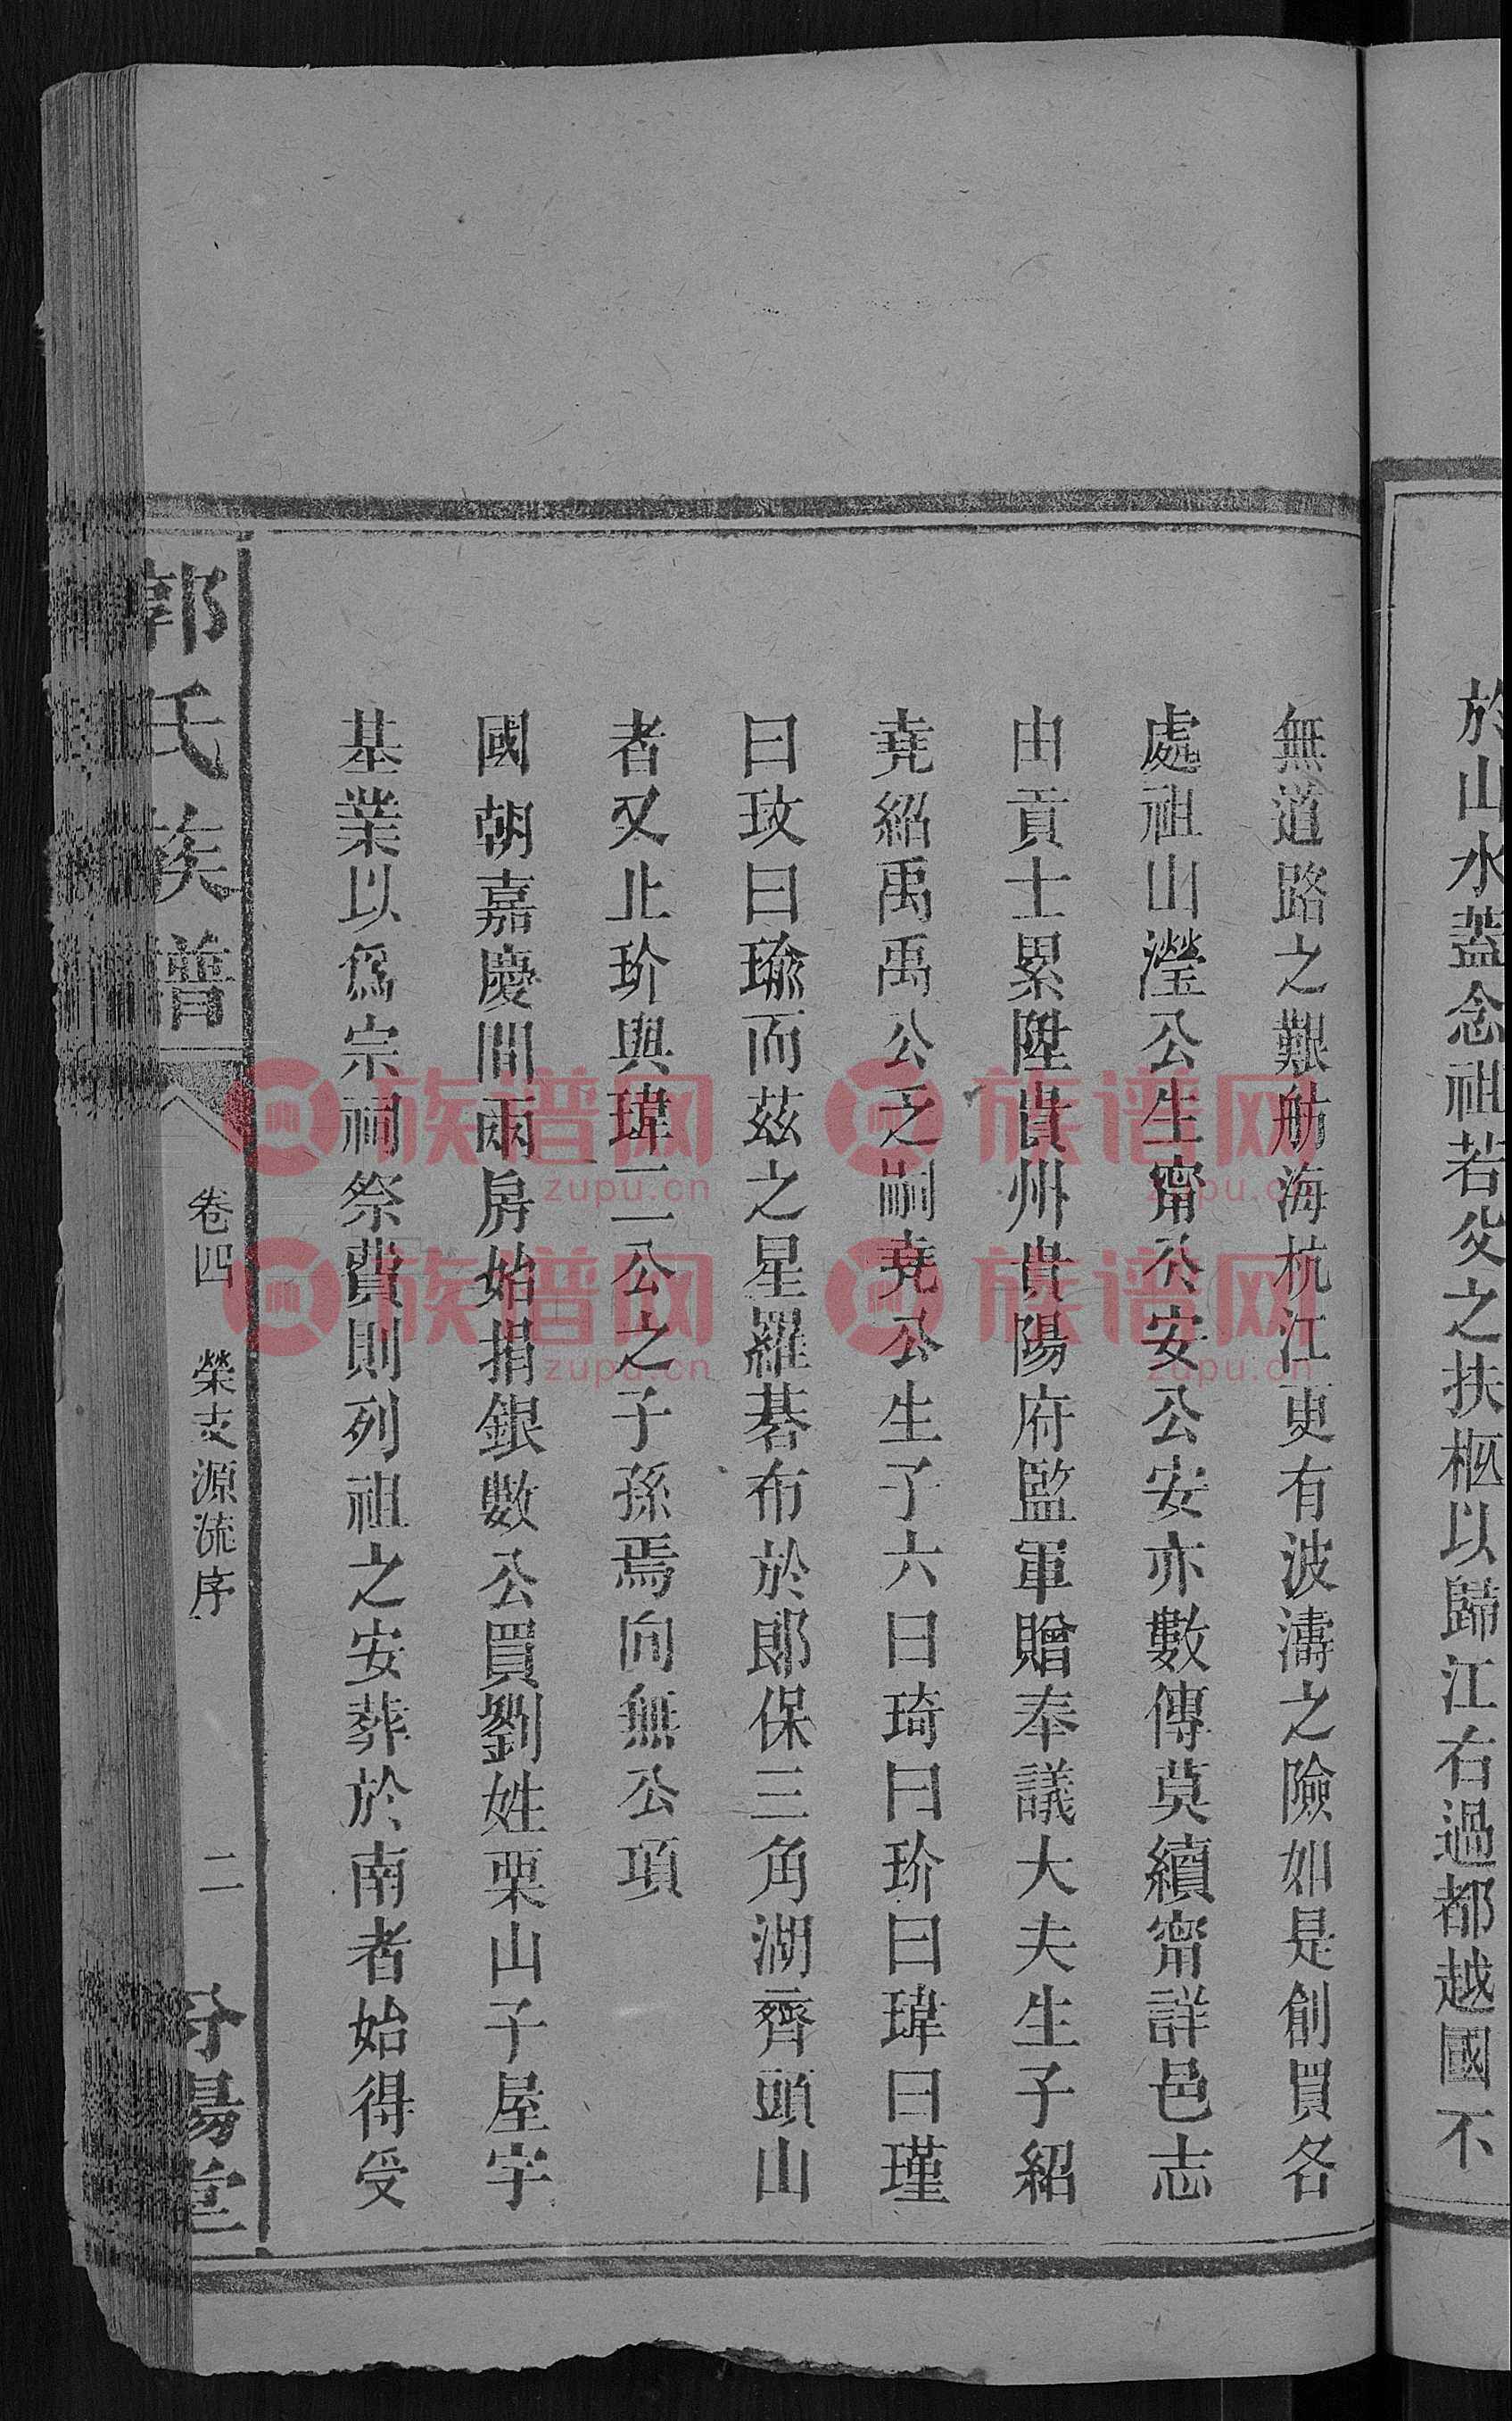 於山水蓋念祖若父之扶柩以歸江右過都越國不
無道路之艱舫海杭江更有波濤之險如是創買各
處祖山瀅公生甯公安公安亦數傳莫續甯詳邑志
由貢士累陞貴州貴陽府監軍贈奉議大夫生子紹
堯紹禹禹公乏嗣堯公生子六曰琦曰玠曰瑋曰瑾
曰玫曰瑜而茲之星羅碁布於郎保三角湖齊頭山
者又止玠與瑋二公之子孫焉向無公項
國朝嘉慶間兩房始捐銀數公買劉姓栗山子屋宇
基業以為宗祠祭費則列祖之安葬於南者始得受
郭氏族譜
卷四
榮支源流序
二
汾陽堂
族谱网
zupu.cn
族谱网
zupu.cn
族谱网
zupu.cn
族谱网
zupu.cn